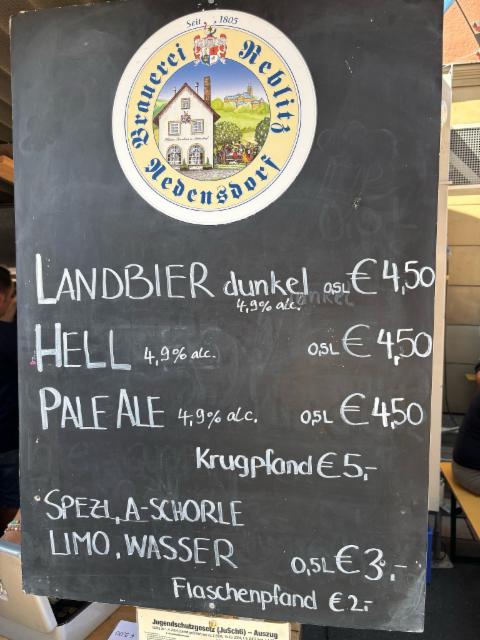 Seit 1805
Brauerei Reblitz
Nedensdorf
LANDBIER dunkel 0,5L € 4,50
4,9% alc.
HELL 4,9% alc. 0,5L € 4,50
PALE ALE 4,9% alc. 0,5L € 4,50
Krugpfand € 5,-
SPEZI, A-SCHORLE
LIMO, WASSER 0,5L € 3,-
Flaschenpfand € 2,-
Jugendschutzgesetz (JuSchG) – Auszug